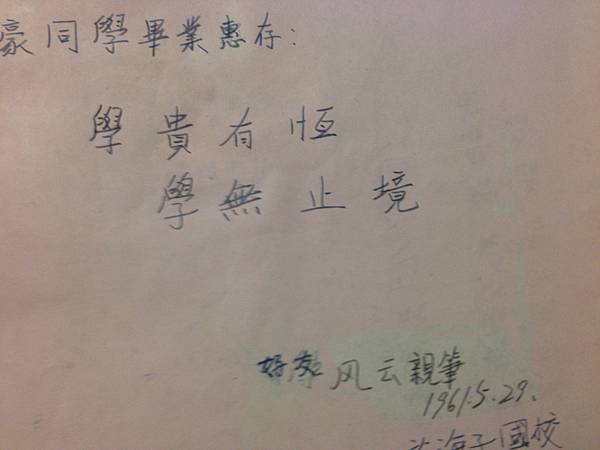 豪同學畢業惠存:
學貴有恆
學無止境
好友风云親筆
1961.5.29.
海子國校